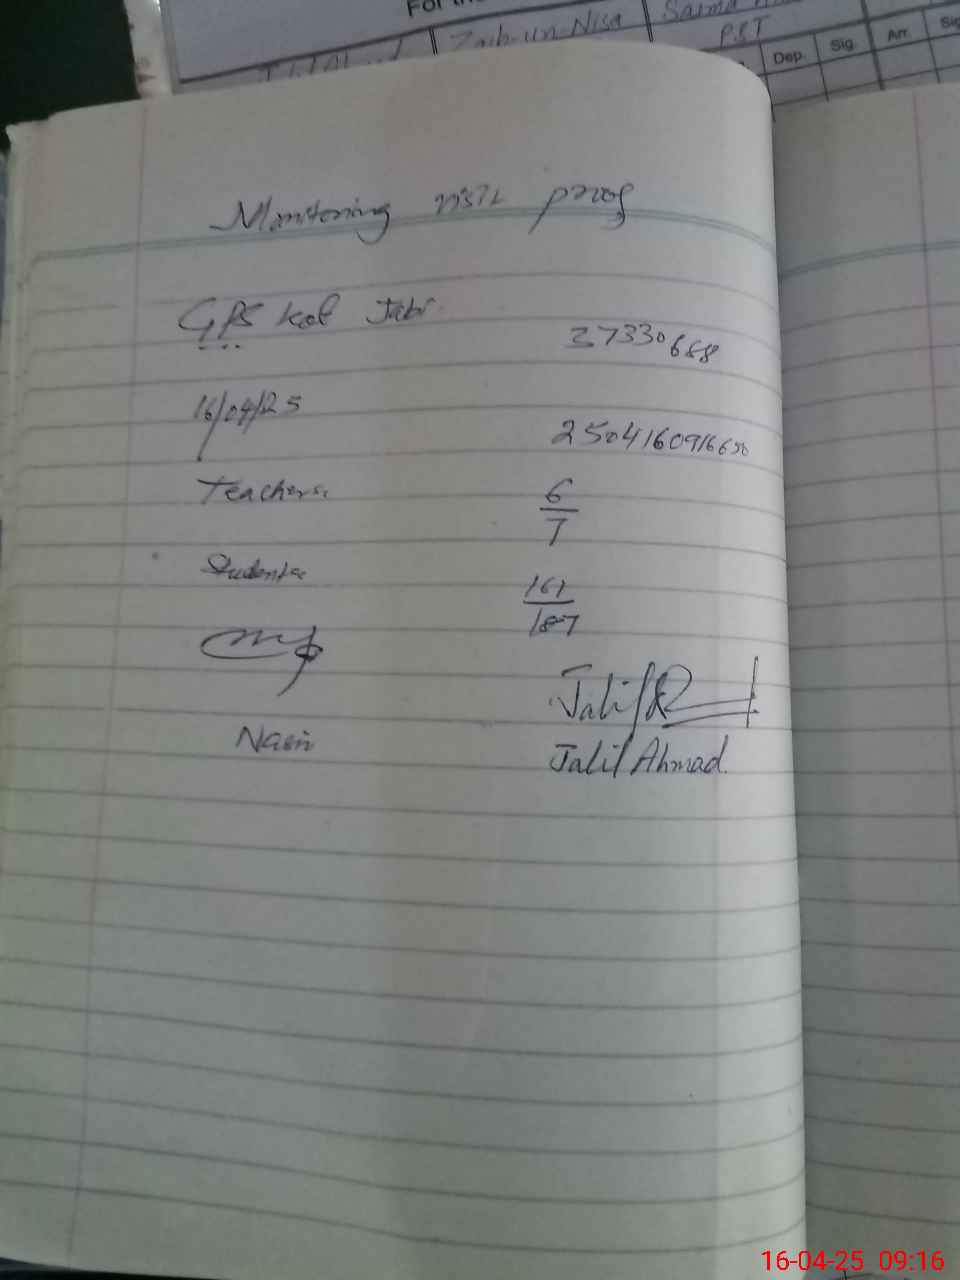 For the
Zaib-un-Nisa
Saima
PST
Dep. Sig. Arr. Sig
Monitoring visit proof
GPS Kot Jabi
37330688
16/04/25
2504160916650
Teachers: 6/7
Students: 161/187
Jalil
Nasir
Jalil Ahmad
16-04-25 09:16